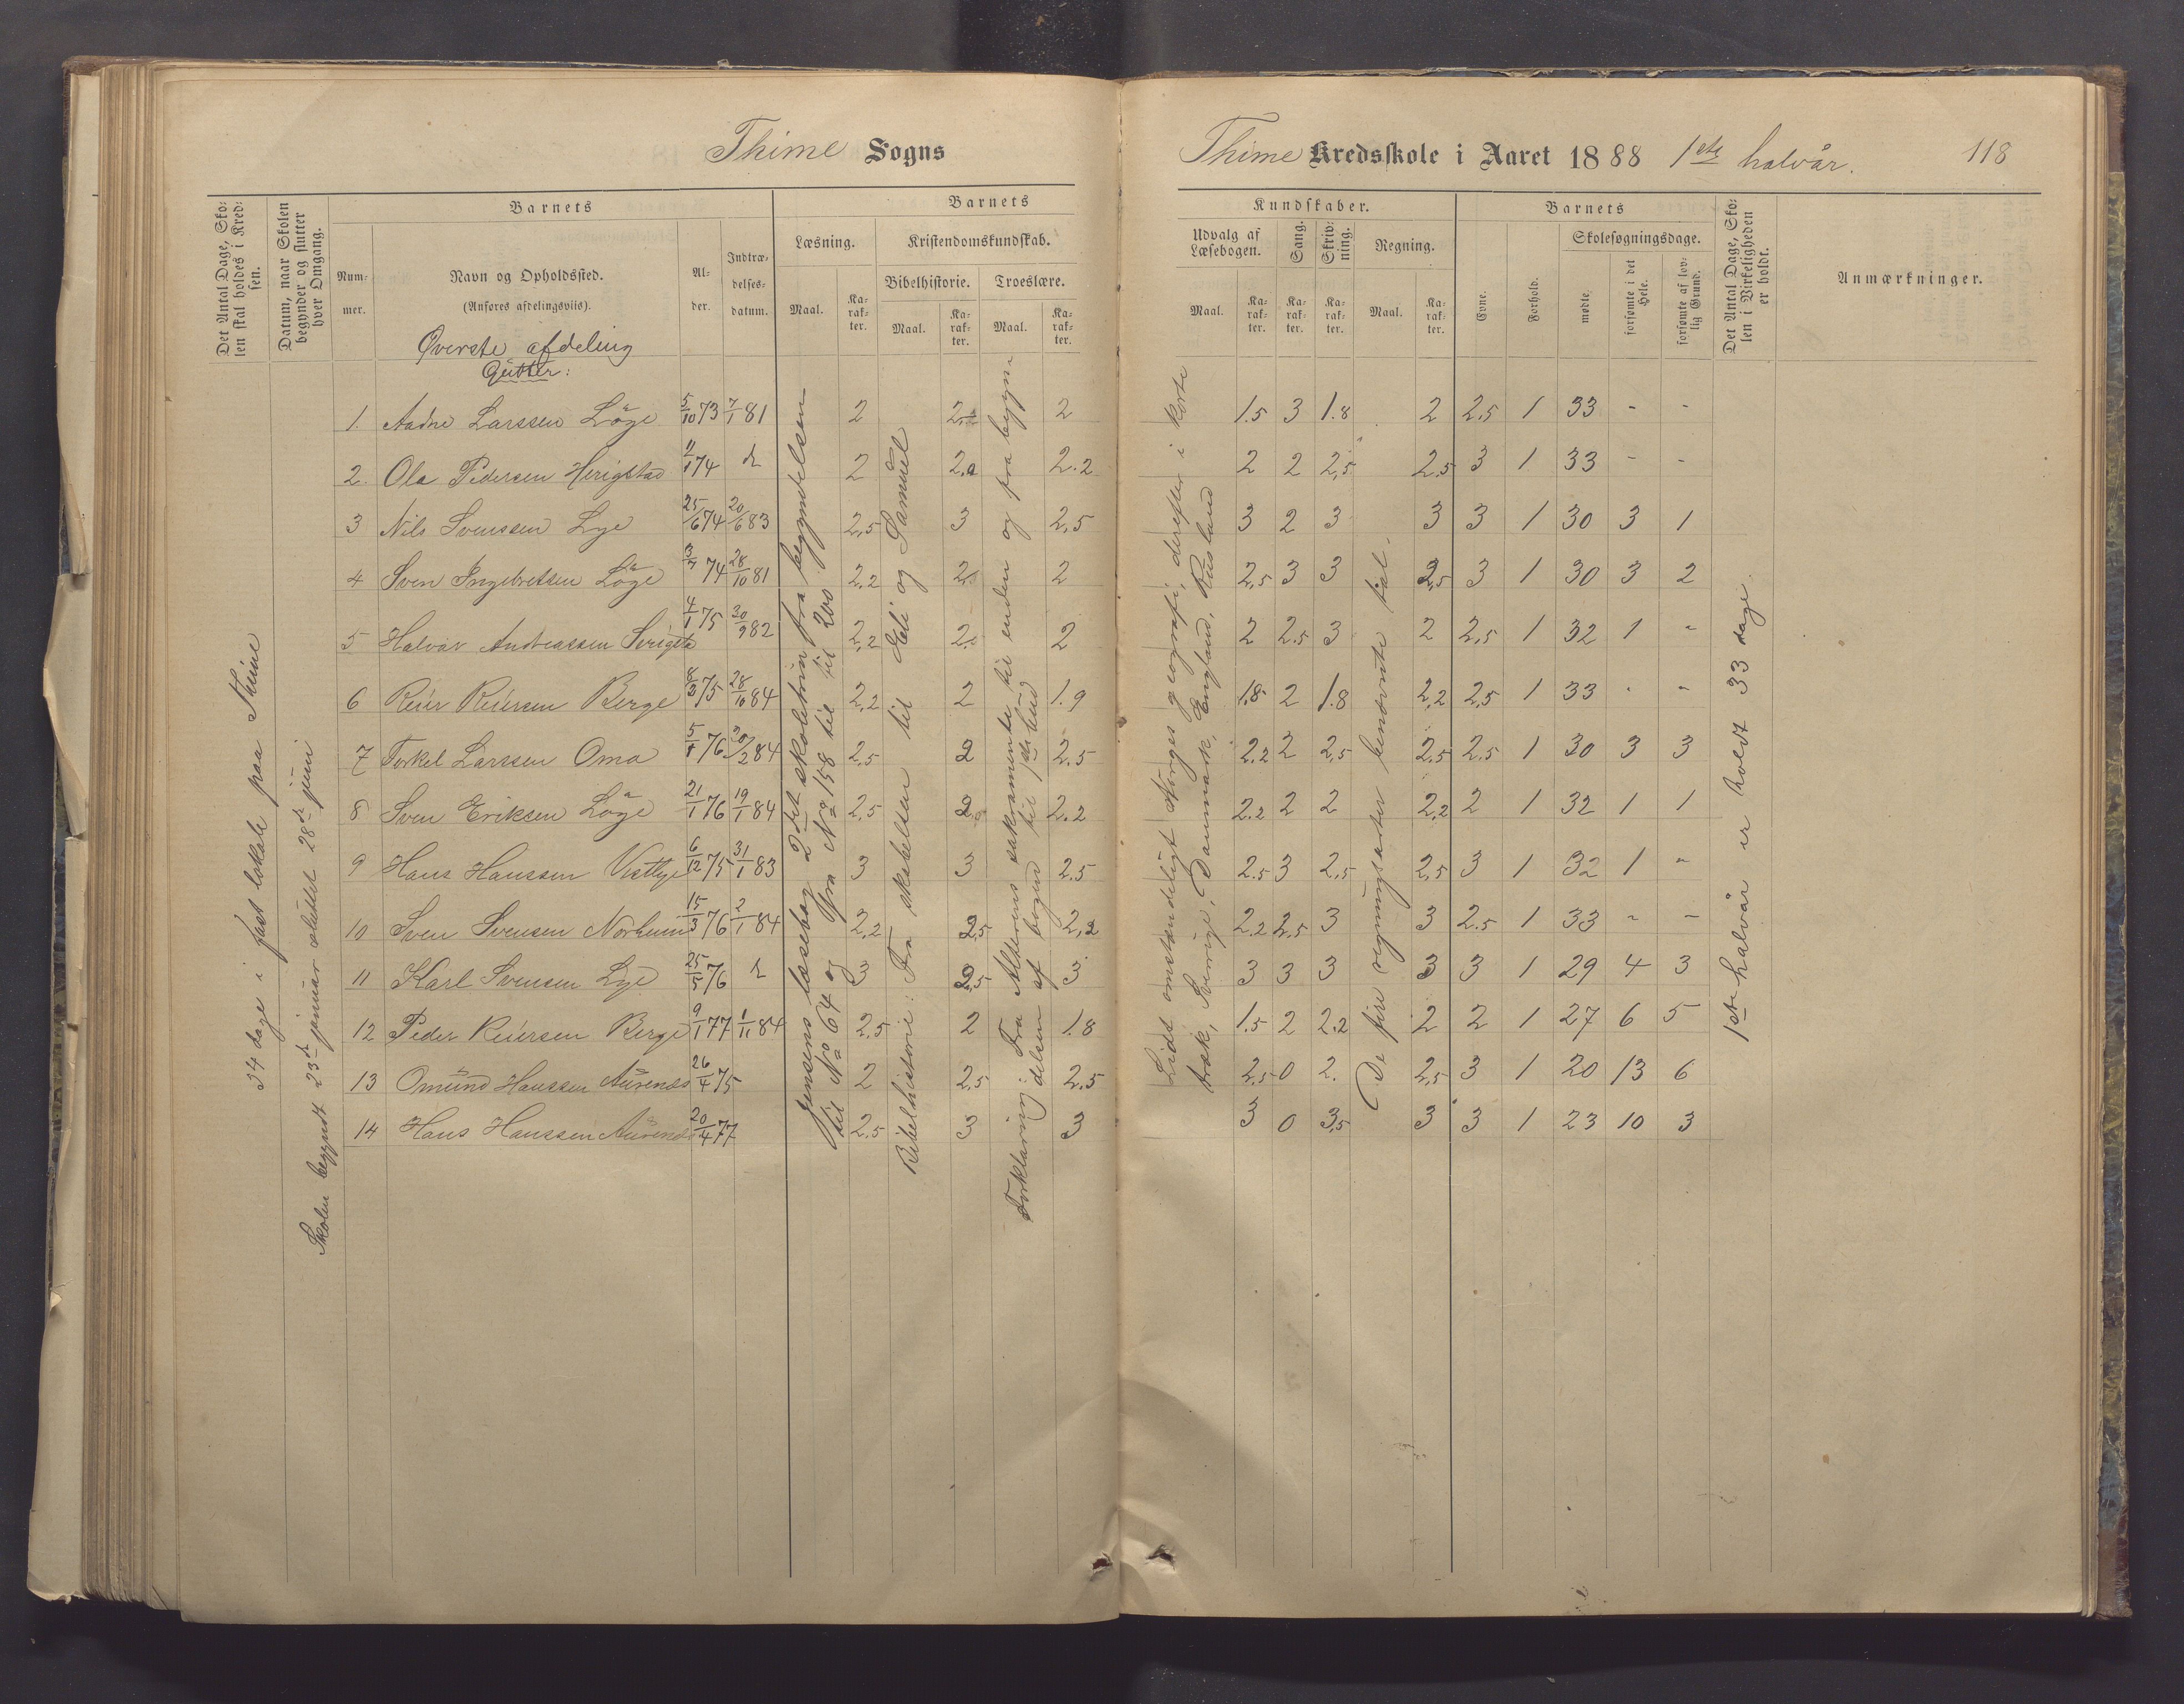 Thime Sogns
Thime Kredsskole i Aaret 1888 1ste halvår. 118
Det Antal Dage, Skolen skal holdes i Kredsen.
Datum, naar Skolen begynder og slutter hver Omgang.
Barnets
Nummer.
Navn og Opholdssted.
(Anføres afdelingsviis).
Alder.
Indtrædelsesdatum.
Barnets
Læsning.
Kristendomskundskab.
Bibelhistorie. Troeslære.
Maal. Karakter. Maal. Karakter. Maal. Karakter.
Kundskaber.
Udvalg af Læsebogen. Sang. Skrivning. Regning.
Maal. Karakter. Karakter. Karakter. Maal. Karakter.
Barnets
Evne. Forhold.
Skolesøgningsdage.
mødte. forsømte i det Hele. forsømte af lovlig Grund.
Det Antal Dage, Skolen i Virkeligheden er holdt.
Anmærkninger.
Øverste afdeling
Gutter:
34 dage i fast lokale paa Thime
Skolen begyndt 23de januar sluttet 28de juni
Jensens læsebog 2det skoletrin fra begyndelsen
til No 64 og fra No 158 til til 200
Bibelhistorie: Fra skabelsen til Eli og Samuel
Forklaring: Fra Alterens sakramente til enden og fra begyndelsen af bogen til 1ste bud
Lidt omstændeligt Norges geografi, derefter i korte
træk, Sverige, Danmark, England, Rusland
De fire regningsarter benævnte tal.
1ste halvår er holdt 33 dage.
1. Aadne Larssen Löge 5/10 73 7/1 81 2 2 2 1.5 3 1.8 2 2.5 1 33 - -
2. Ola Pedersen Herigstad 11/1 74 d 2 2.2 2.2 2 2 2,5 2.5 3 1 33 - -
3 Nils Svenssen Lye 25/6 74 20/6 83 2,5 3 2,5 3 2 3 3 3 1 30 3 1
4 Sven Ingebretsen Löge 3/7 74 28/10 81 2,2 2 2 2,5 3 3 2,5 3 1 30 3 2
5 Halvar Andreassen 4/1 75 30/9 82 2,2 2 2 2 2.5 3 2 2,5 1 32 1 -
6 Reier Reiersen Berge 8/3 75 28/10 84 2,2 2 1.9 1.8 2 1.8 2,2 2,5 1 33 - -
7 Torkel Larssen Oma 5/1 76 20/2 84 2,5 2 2.5 2.2 2 2,5 2.5 2.5 1 30 3 3
8 Sven Eriksen Löge 21/1 76 19/1 84 2,5 2 2.2 2.2 2 2 2,2 2 1 32 1 1
9 Hans Hanssen Vestlye 6/12 75 31/1 83 3 3 2.5 2.5 3 2,5 2,5 3 1 32 1 -
10 Sven Svensen Norheim 15/3 76 2/1 84 2,2 2,5 2,2 2.2 2.5 3 3 2.5 1 33 - -
11 Karl Svensen Lye 25/5 76 d 3 2,5 3 3 3 3 3 3 1 29 4 3
12 Peder Reiersen Berge 9/1 77 1/11 84 2.5 2 1.8 1.5 2 2.2 2 2 1 27 6 5
13 Omund Hanssen Aurenes 26/4 75 2 2,5 2.5 2,5 0 2. 2,5 3 1 20 13 6
14 Hans Hanssen Aurenes 20/4 77 2.5 3 3 3 0 3,5 3 3 1 23 10 3